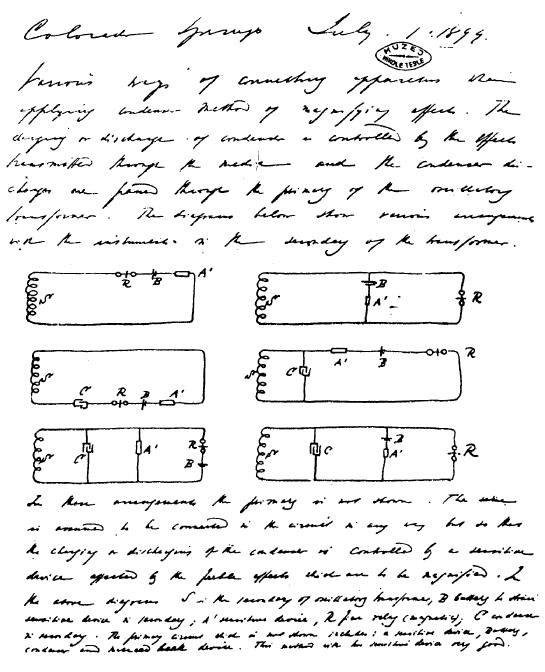 Colorado Springs July 1. 1899.
MUZEJ
NIKOLE TESLE
Various ways of connecting apparatus when
applying condenser method of magnifying effects. The
charging or discharge of condenser is controlled by the effects
transmitted through the media and the condenser dis-
charges are passed through the primary of the oscillatory
transformer. The diagrams below show various arrangements
with the instruments in the secondary of the transformer.
S R B A'
S B A' R
S C R B A'
S C A' B R
S C A' R B
S C B A' R
In these arrangements the primary is not shown. The same
is assumed to be connected in the circuit in any way but so that
the charging or discharging of the condenser is controlled by a sensitive
device affected by the feeble effects which are to be magnified. In
the above diagrams S is the secondary of oscillatory transformer, B battery to strain
sensitive device in secondary, A' sensitive device, R relay (magnetic), C condenser
in secondary. The primary circuit which is not shown includes: a sensitive device, Battery,
condenser and device. This method with two sensitive device very good.